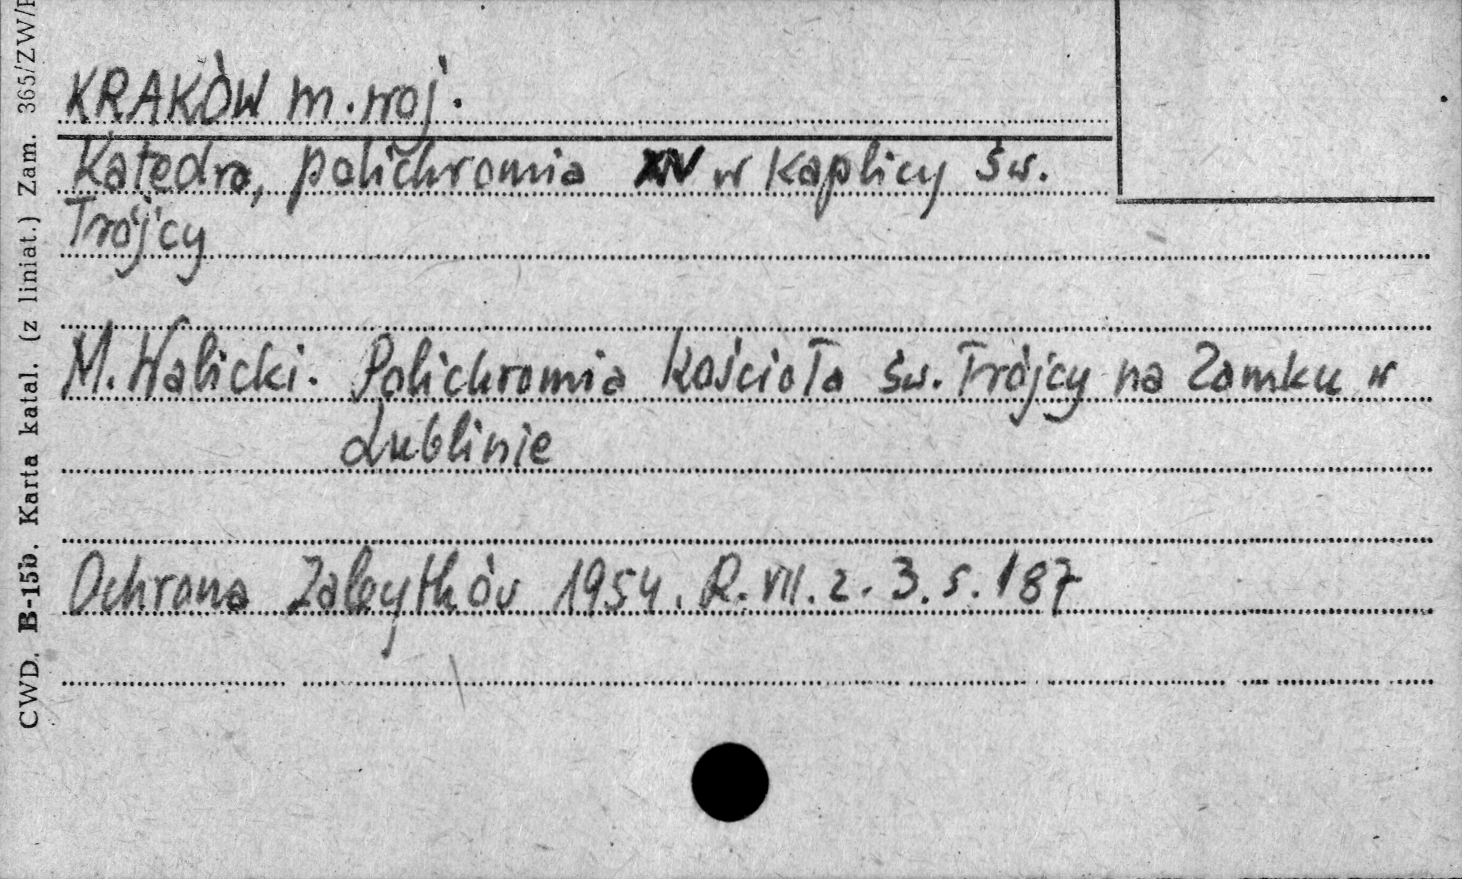 KRAKÓW m. woj.
Katedra, polichromia w Kaplicy św.
Trójcy
M. Walicki. Polichromia kościoła św. Trójcy na Zamku w
Lublinie
Ochrona Zabytków 1954. R. VII. z. 3. s. 187
CWD. B-15b. Karta katal. (z liniat.) Zam. 365/ZW/